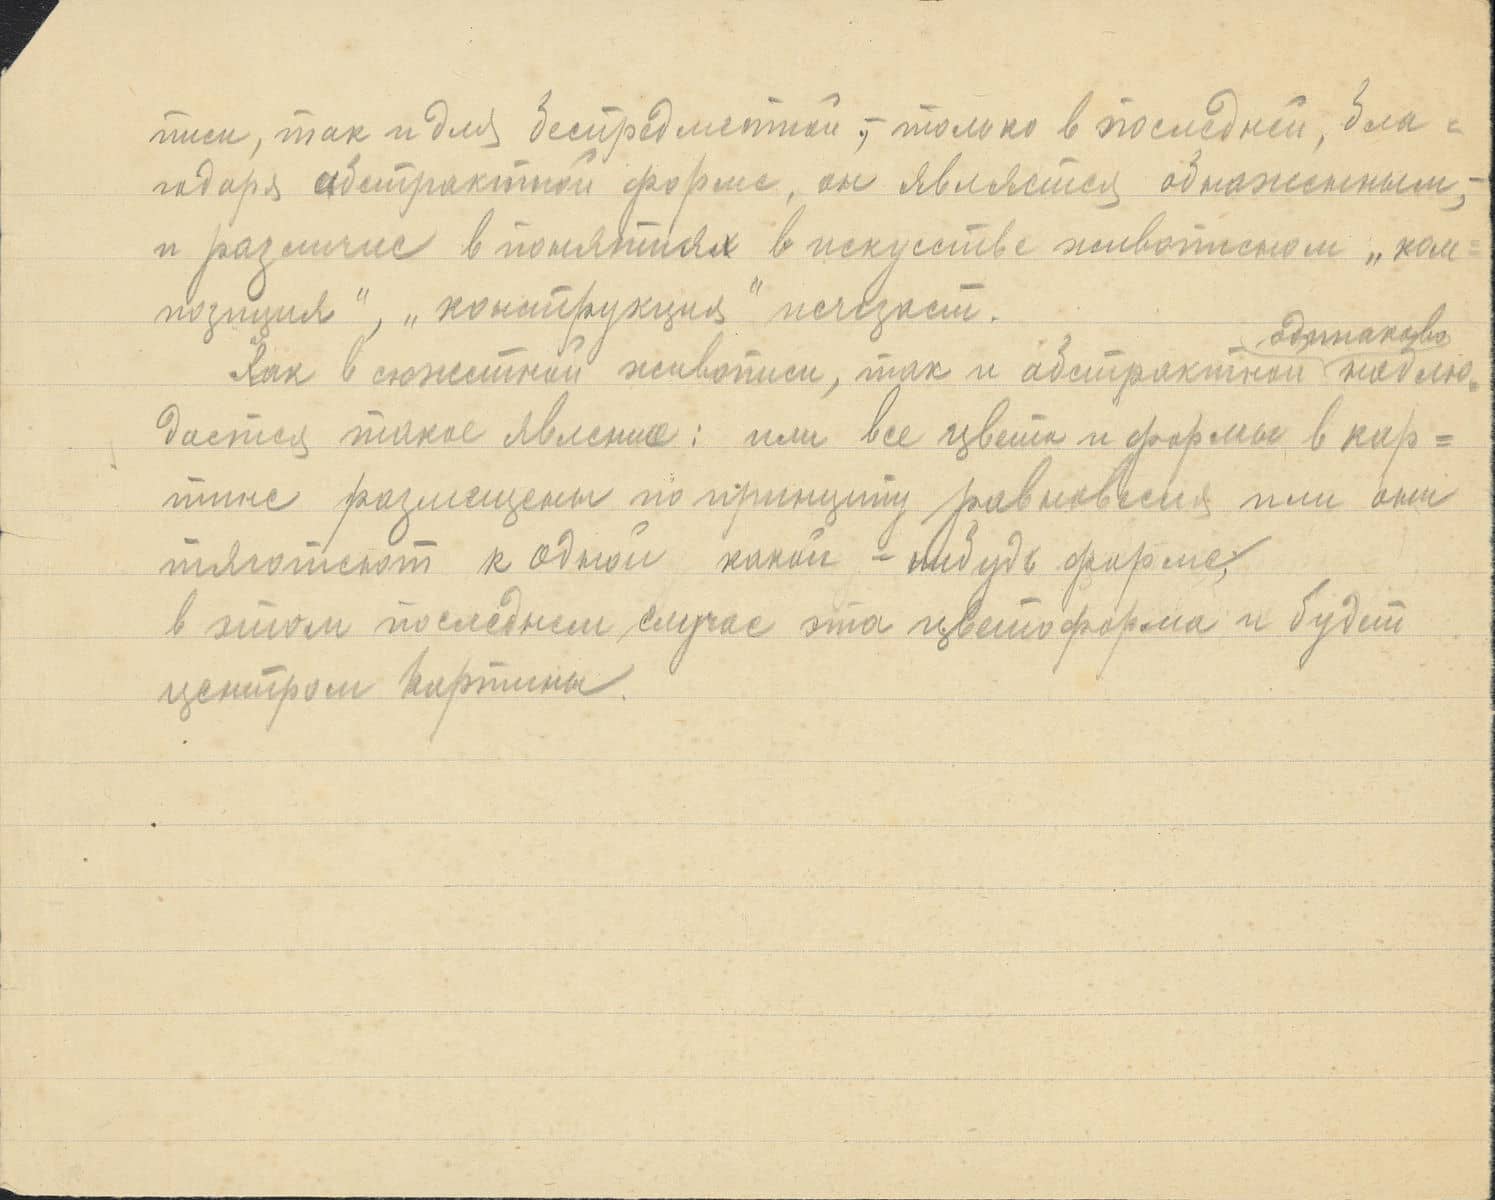 писи, так и для беспредметной, – только в последней, бла=
годаря абстрактной форме, он является обнаженным, –
и различие в понятиях в искусстве живописном „ком=
позиция“, „конструкция“ исчезает.
одинаково
Как в сюжетной живописи, так и абстрактной наблю=
дается такое явление: или все цвета и формы в кар=
тине размещены по принципу равновесия или они
тяготеют к одной какой-нибудь форме,
в этом последнем случае эта цветоформа и будет
центром картины.